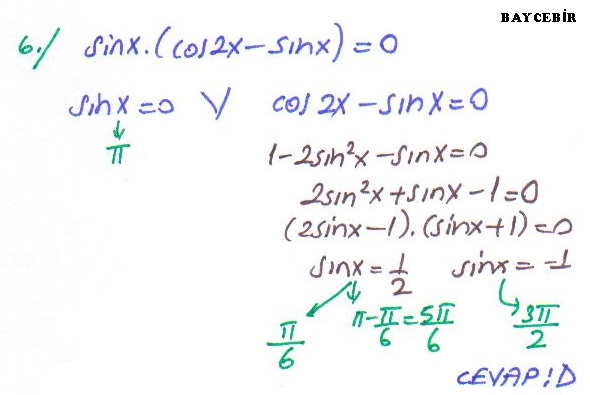 BAYCEBİR
6./ sinx.(cos2x-sinx)=0
sinx=0 V cos2x-sinx=0
π
1-2sin²x-sinx=0
2sin²x+sinx-1=0
(2sinx-1).(sinx+1)=0
sinx=1/2 sinx=-1
π/6 π-π/6=5π/6 3π/2
CEVAP:D